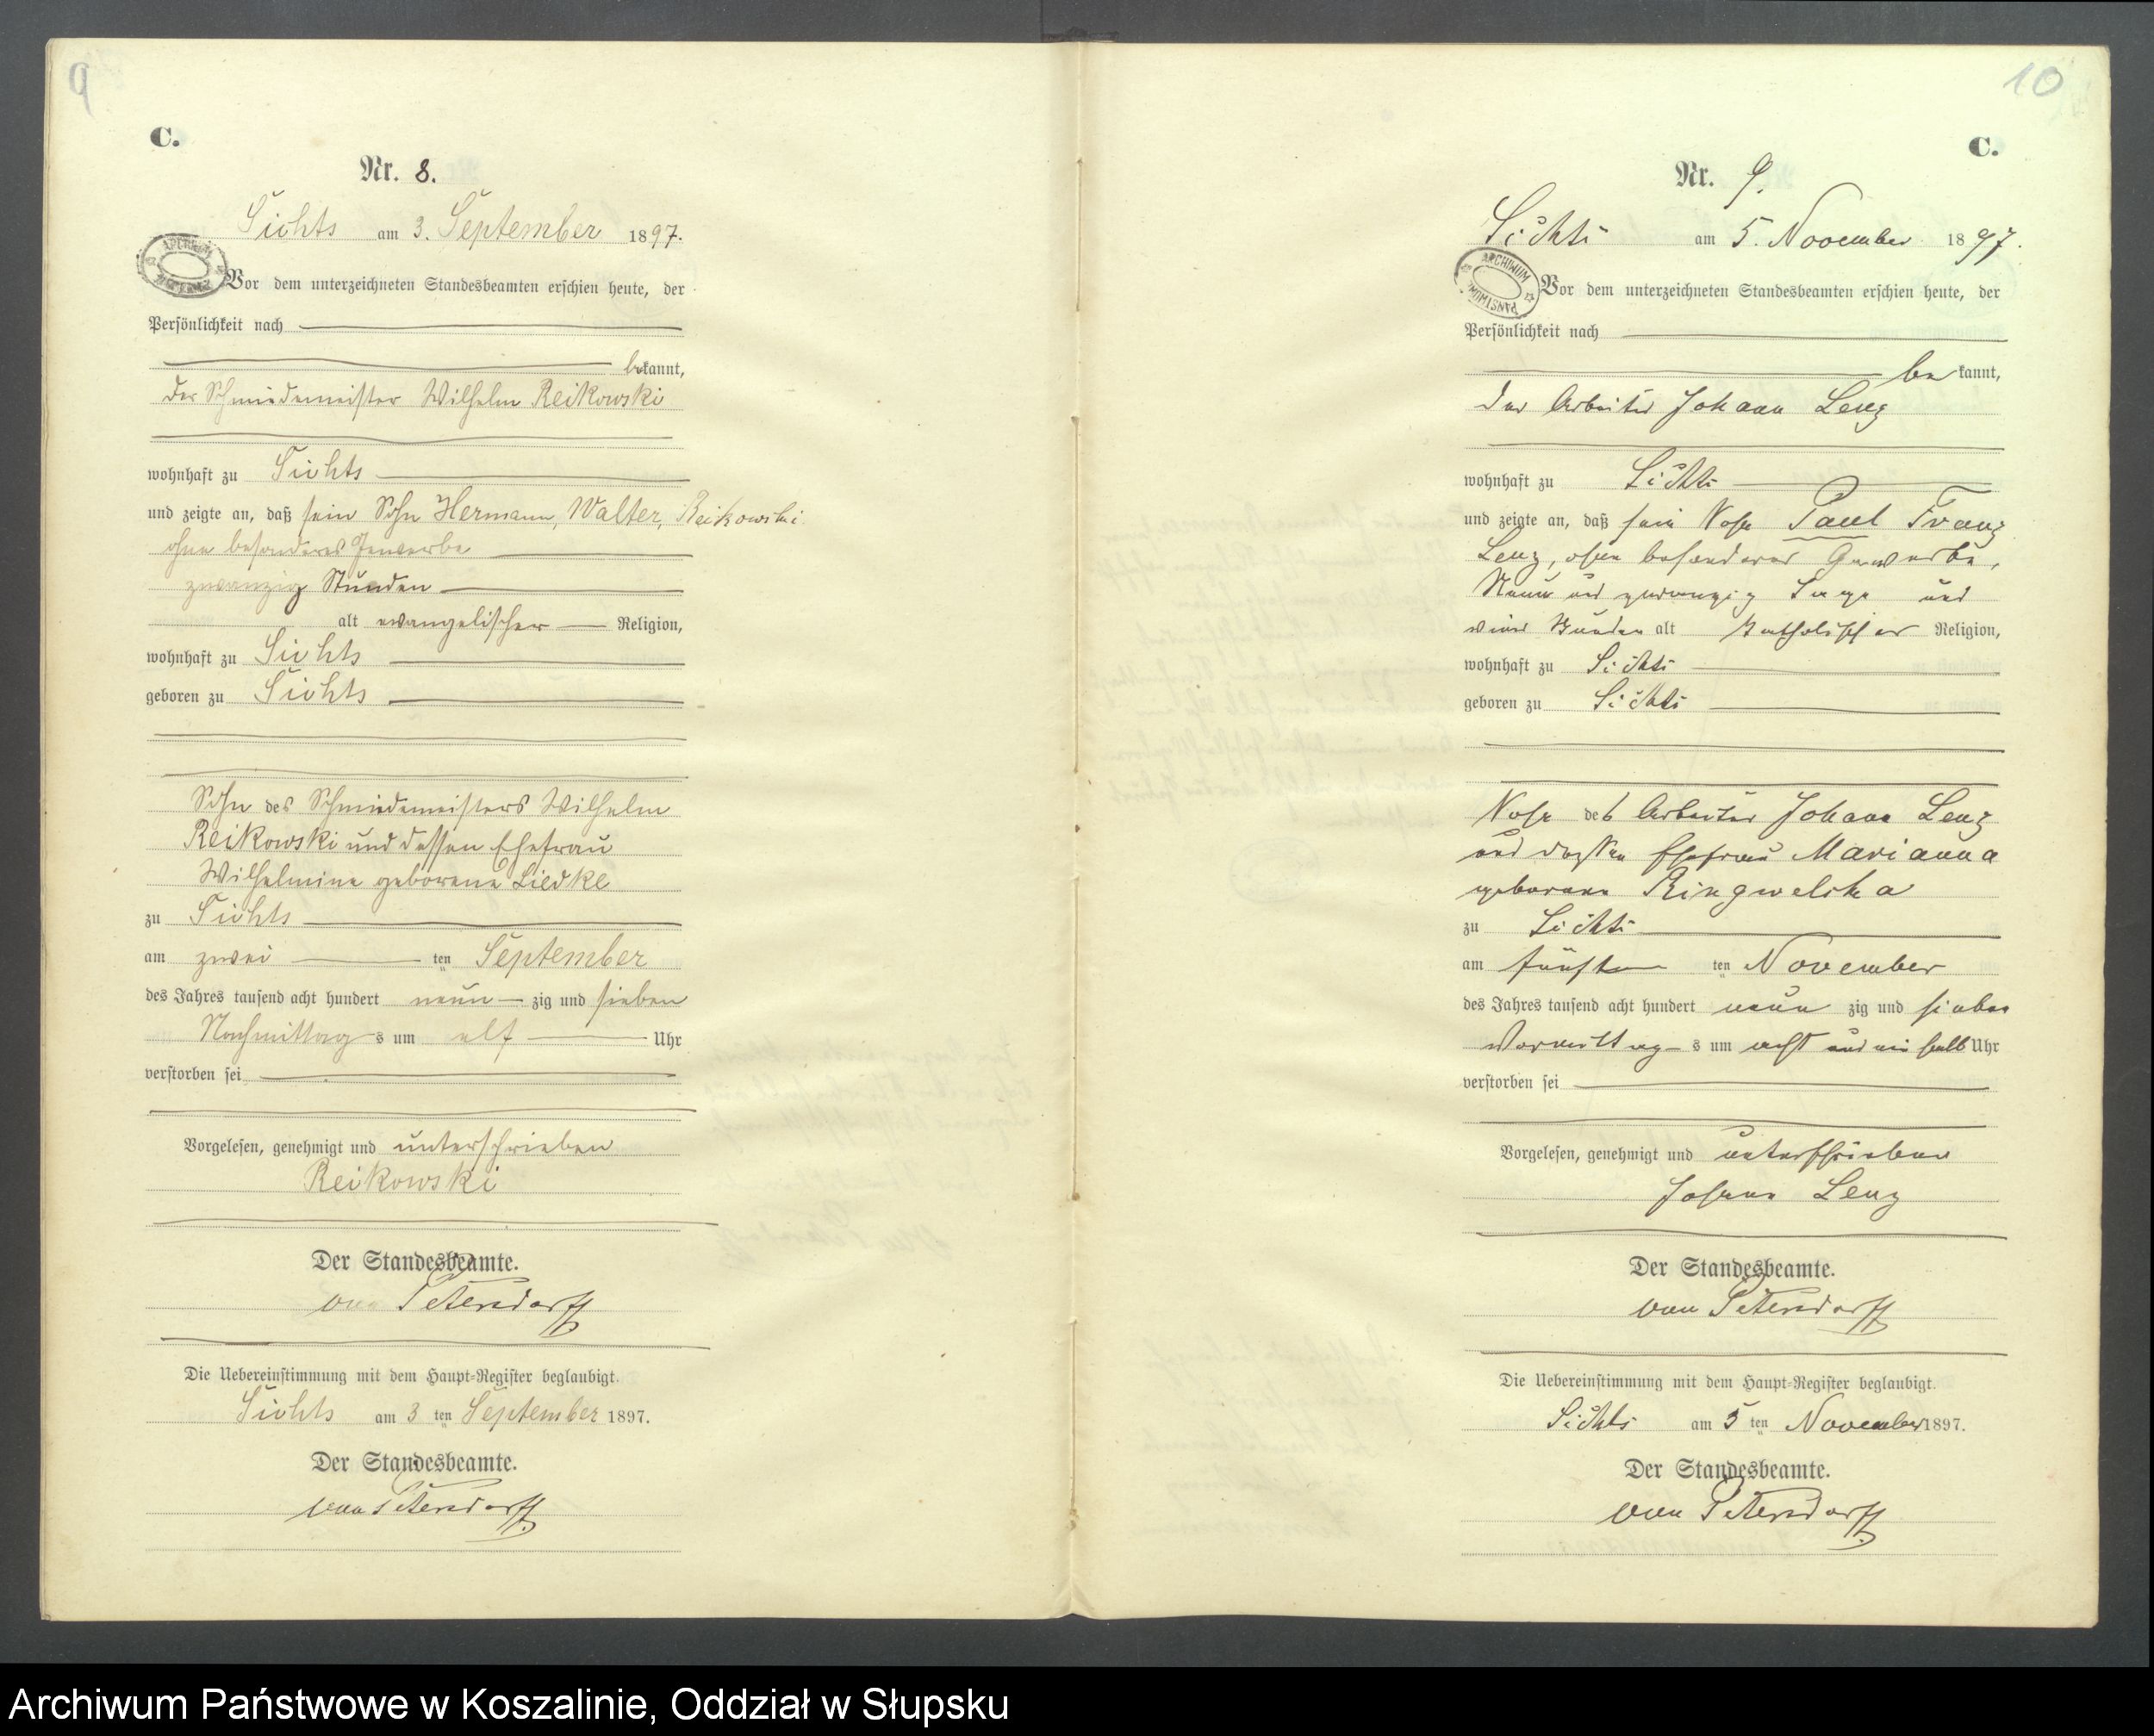 9
C.
Nr. 8.
Sichts am 3. September 1897.
Vor dem unterzeichneten Standesbeamten erschien heute, der
Persönlichkeit nach
bekannt,
der Schmiedemeister Wilhelm Reikowski
wohnhaft zu Sichts
und zeigte an, daß sein Sohn Hermann, Walter, Reikowski
ohne besonderes Gewerbe
zwanzig Stunden
alt evangelischer Religion,
wohnhaft zu Sichts
geboren zu Sichts
Sohn des Schmiedemeisters Wilhelm
Reikowski und dessen Ehefrau
Wilhelmine geborene Liedke
zu Sichts
am zwei ten September
des Jahres tausend acht hundert neun zig und sieben
Nachmittag s um elf Uhr
verstorben sei
Vorgelesen, genehmigt und unterschrieben
Reikowski
Der Standesbeamte.
von Petersdorff
Die Uebereinstimmung mit dem Haupt-Register beglaubigt.
Sichts am 3 ten September 1897.
Der Standesbeamte.
von Petersdorff.
10
C.
Nr. 9.
Sichts am 5. November 1897.
ARCHIWUM PAŃSTWOWE
Vor dem unterzeichneten Standesbeamten erschien heute, der
Persönlichkeit nach
bekannt,
der Arbeiter Johann Lenz
wohnhaft zu Sichts
und zeigte an, daß sein Sohn Paul Franz
Lenz, ohne besonderes Gewerbe,
Neun und zwanzig Tage und
vier Stunden alt katholischer Religion,
wohnhaft zu Sichts
geboren zu Sichts
Sohn des Arbeiter Johann Lenz
und dessen Ehefrau Marianna
geborene Ringwelska
zu Sichts
am fünften ten November
des Jahres tausend acht hundert neun zig und sieben
Vormittag s um acht und ein halb Uhr
verstorben sei
Vorgelesen, genehmigt und unterschrieben
Johann Lenz
Der Standesbeamte.
von Petersdorff
Die Uebereinstimmung mit dem Haupt-Register beglaubigt.
Sichts am 5 ten November 1897.
Der Standesbeamte.
von Petersdorff.
Archiwum Państwowe w Koszalinie, Oddział w Słupsku